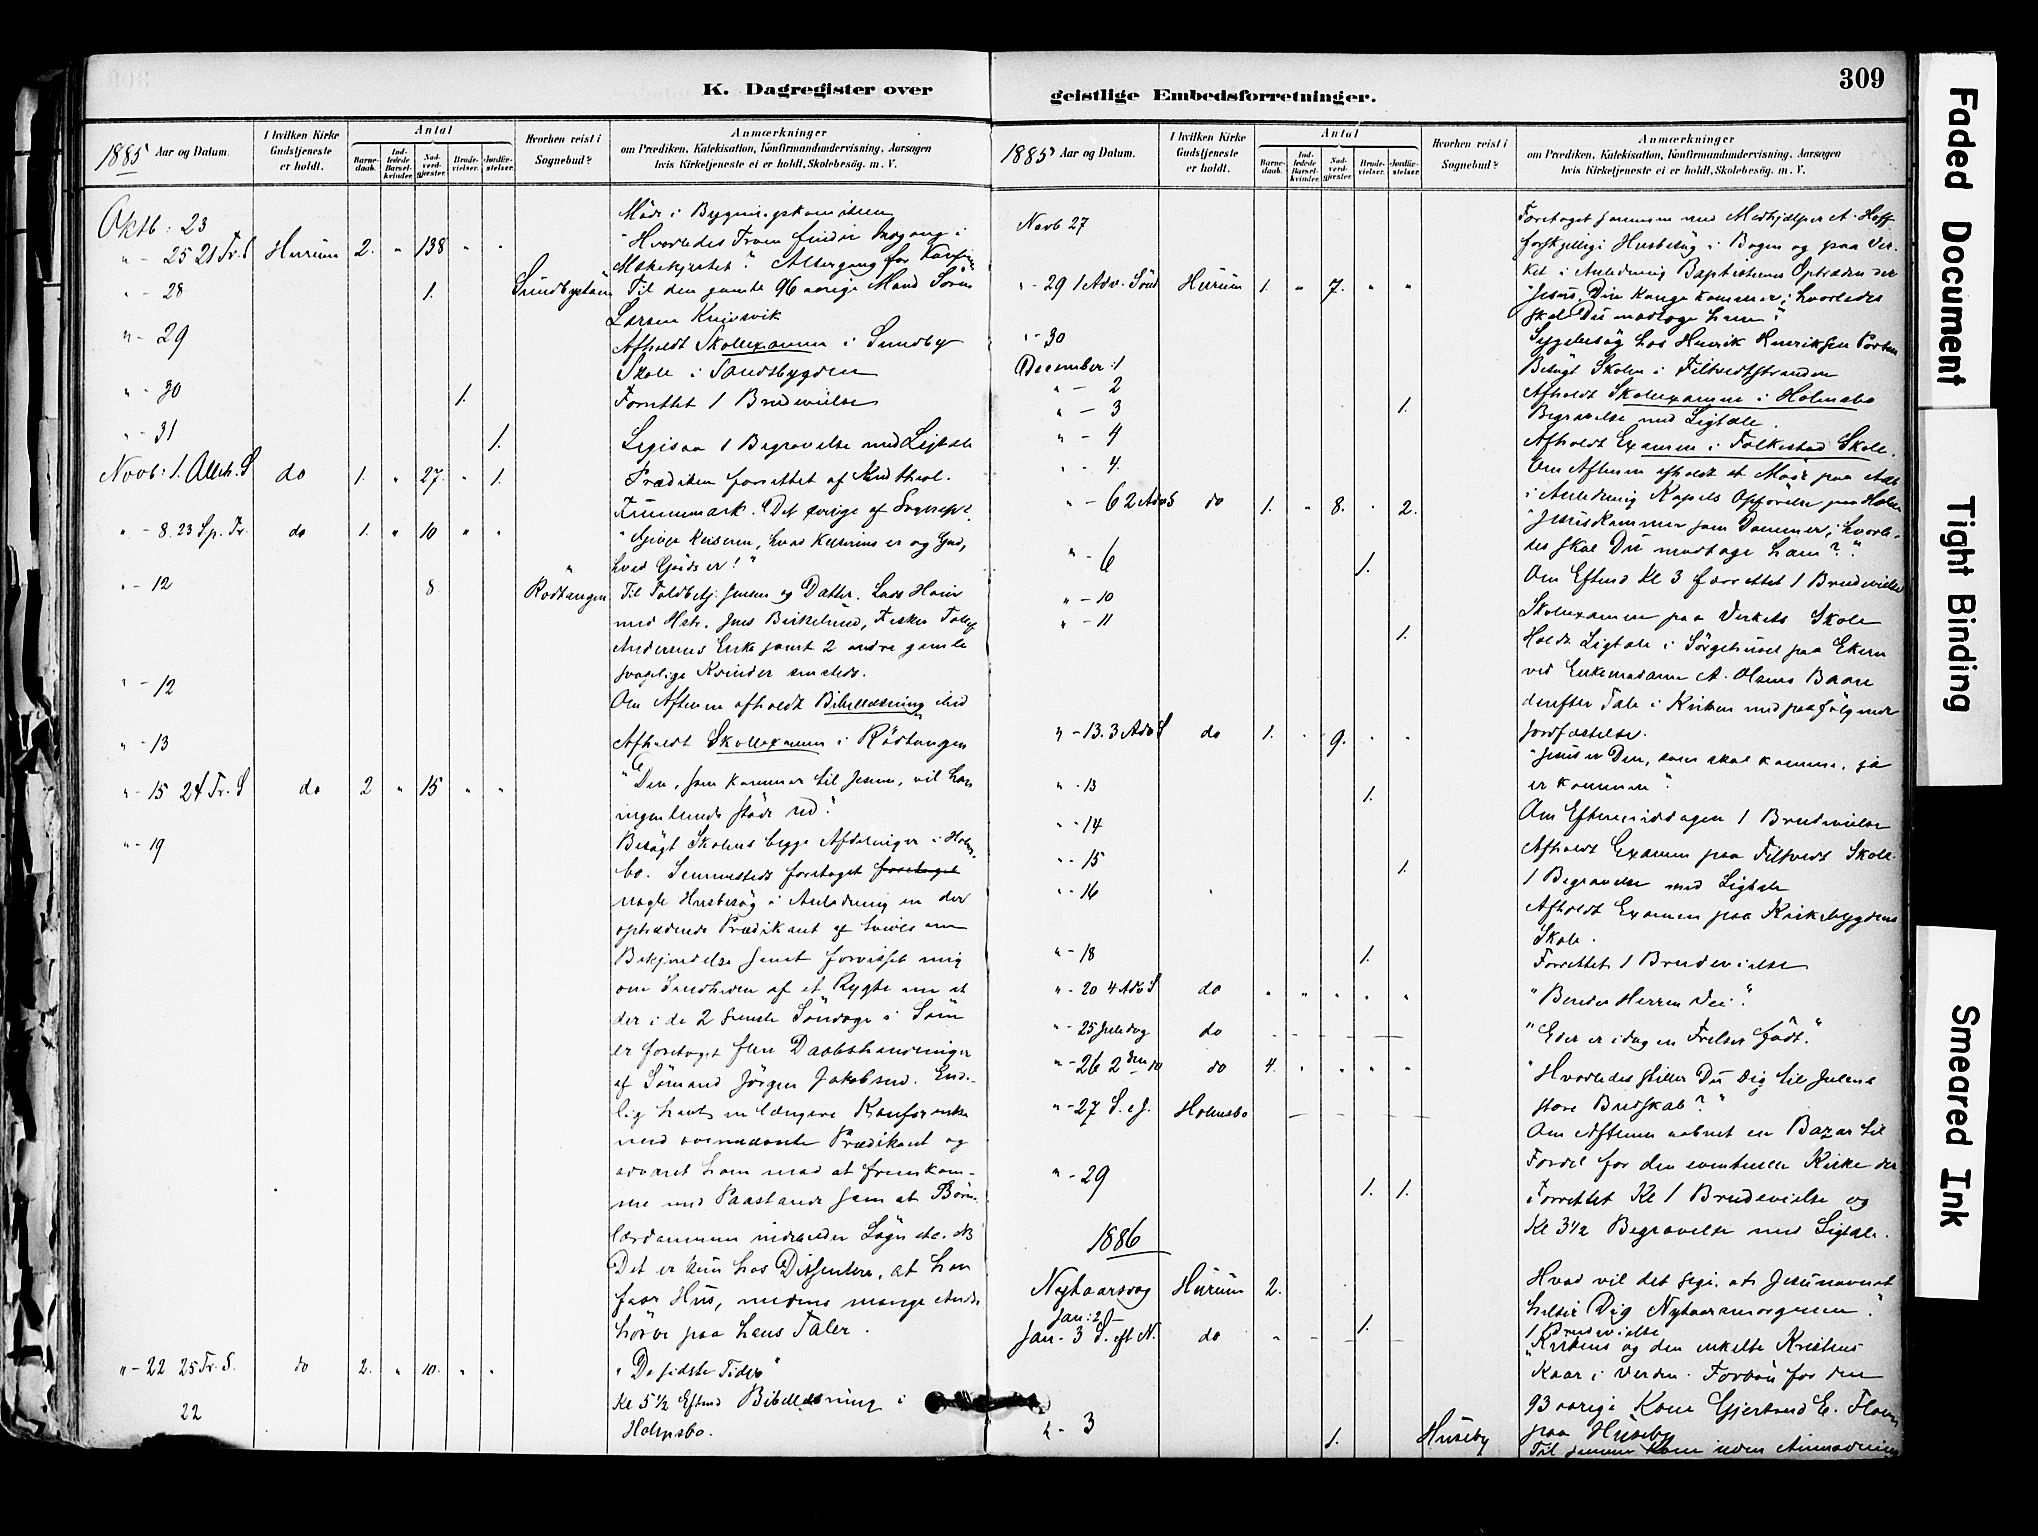 309
K. Dagregister over
geistlige Embedsforretninger.
1885 Aar og Datum.
I hvilken Kirke Gudstjeneste er holdt.
Antal
Barnedaab.
Indledede Barselkvinder.
Nadverdgjæster.
Brudevielser.
Jordfæstelser.
Hvorhen reist i Sognebud?
Anmærkninger
om Prædiken, Katekisation, Konfirmandundervisning, Aarsagen
hvis Kirketjeneste ei er holdt, Skolebesög. m. V.
Oktb: 23 Möde i Bygningskomiteen
" - 25 21 Tr. S Hurum 2. " 138 " " "Hvorledes Troen finder Indgang i
Altergang for
" - 28 1. Til den gamle 96 aarige Mand Sören
Larsen Knivsvik
" - 29 Afholdt Skoleexamen i Sundby
Skole i Tandsbygden
" - 30 1. Forrettet 1 Brudevielse
" - 31 1. 1 Begravelse med Ligtale
Novb: 1. Alleh. S do 1. " 27. " 1. Prædiken forrettet af
Det övrige af Sognepr.
" - 8. 23 Sp. Tr. do 1. " 10 " " "Giver Keiseren, hvad Keiserens er og Gud,
hvad Guds er!"
" - 12 8 Rödtangen Til Toldbetj. Jensen og Datter. Lods
med Hstr. Jens Birkelund, Fisker
Andersens Enke samt 2 andre gamle
svagelige Kvinder smsteds.
" - 12 Om Aftenen afholdt Bibellæsning smsd
" - 13 Afholdt Skoleexamen i Rödtangen
" - 15 24 Tr. S do 2 " 15 " " "Den, som kommer til Jesum, vil han
ingenlunde stöde ud."
" - 19 Besögt Skolens begge Afdelinger i Holms-
bo. Sammesteds foretaget foretaget
nogle Husbesög i Anledning en der
optrædende Prædikant af hvis
Bekjendelse samt forvisset mig
om Sandheden af et Rygte om at
der i de 2 seneste Söndage i
er foretaget flere Daabshandlinger
af Sömand Jörgen Jakobsen. End-
lig havt en længere Konferentse
med ovennævnte Prædikant og
advaret ham mod at fremkom-
me med Paastande som at Börne-
lærdommen indeholder Lögn etc. NB
Det er kun hos Dissentere, at han
faar Hus, medens mange Andre
hörer paa hans Taler.
" - 22 25 Tr. S. do 2. " 10. " " "De sidste Tider"
22 Kl 5 1/2 Eftmd Bibellæsning i
Holmsbo.
1885 Aar og Datum.
I hvilken Kirke Gudstjeneste er holdt.
Antal
Barnedaab.
Indledede Barselkvinder.
Nadverdgjæster.
Brudevielser.
Jordfæstelser.
Hvorhen reist i Sognebud?
Anmærkninger
om Prædiken, Katekisation, Konfirmandundervisning, Aarsagen
hvis Kirketjeneste ei er holdt, Skolebesög. m. V.
Novb 27 Foretaget sammen med Medhjælper A. Hoff
forskjellige Husbesög i Bogen og paa Ver-
ket i Anledning Baptisternes Optræden der
" - 29 1 Adv. Sönd Hurum 1. " 7. " " "Jesus, Din Konge kommer; hvorledes
skal Du modtage ham?"
" - 30 Sygebesög hos Henrik Henriksen
December: 1 Besögt Skolen i Filtvedtstranden
" - 2 Afholdt Skoleexamen i Holmsbo
" - 3 1. Begravelse med Ligtale.
" - 4 Afholdt Examen i Folkestad Skole.
" - 4. Om Aftenen afholdt et Möde paa
i Anledning Kapels Opförelse paa
" - 6 2 Adv S do 1. " 8. " 2. "Jesus kommer som Dommer; hvorle-
des skal Du modtage ham?"
" - 6 1. Om Eftmd Kl 3 forrettet 1 Brudevielse
" - 10 Skoleexamen paa Verkets Skole
" - 11 1. Holdt Ligtale i Sörgehuset paa Ekern
ved Enkemadame A. Olsens Baare
derefter Tale i Kirken med paafölgende
Jordfæstelse.
" - 13. 3 Adv S do 1. " 9. " " "Jesus er Den, som skal komme, ja
er kommen".
" - 13 1. Om Eftermiddagen 1 Brudevielse
" - 14 Afholdt Examen paa Filtvedt Skole
" - 15 1. 1 Begravelse med Ligtale
" - 16 Afholdt Examen paa Kirkebygdens
Skole.
" - 18 1. Forrettet 1 Brudevielse
" - 20 4 Adv S do " " " " " "Bereder Herren Vei".
" - 25 Juledag do - - - - - "Eder er idag en Frelser födt."
" - 26 2den do do 4. " " " " "Hvorledes stiller Du Dig til Julens
store Budskab?"
" - 27 S. e J. Holmsbo - - - - - Om Aftenen aabnet en Bazar til
Fordel for den eventuelle Kirke der
" - 29 1. 1. Forrettet Kl 1 Brudevielse og
Kl 3 1/2 Begravelse med Ligtale.
1886
Nytaarsdag Hurum 2. Hvad vil det sige, at Jesunavnet
hilser Dig Nytaarsmorgenen."
Jan: 2 1. 1 Brudevielse
Jan. 3 S. eft N. do - - - - - "Kirkens og den enkelte Kristens
Kaar i Verden. Forbön for den
93 aarige Kone Gjertrud E.
paa Huseby
" - 3 1. Huseby Til samme Kone